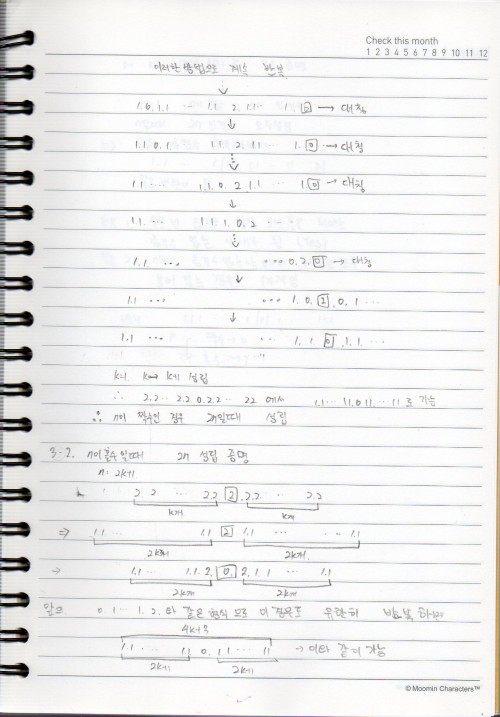 Check this month
1 2 3 4 5 6 7 8 9 10 11 12
이러한 방법으로 계속 반복
↓
1.0.1.1 ... 1.1. 2.1.1 1.0 → 대칭
↓
1.1.0.1. 1.1.2.1.1... 1.0 → 대칭
↓
1.1 ... 1.1.0.2 1.1... 1.0 → 대칭
↓
1.1. ... 1.1.1.0.2
↓
1.1 ... ... 0.2.0 → 대칭
↓
1.1 ... ... 1.0.2.0.1 ...
↓
1.1 ... 1.1.0.1.1...
k=1. k → k+1 성립
∴ 2.2... 2.2.0.2.2... 22 에서 1.1... 11.0.11... 11 로 가능
∴ n이 짝수인 경우 2n일때 성립
3-2. n이 홀수일때 2n 성립 증명
n=2k+1
2.2 ... 2.2 2 2.2 ... 2.2
k개 k개
⇒ 1.1 ... 1.1 2 1.1. ... 1.1
2k개 2k개
→ 1.1 ... 1.1.2.0.2.1.1 ... 1.1
2k개 2k개
앞으 0.1... 1.2.와 같은 형식으로 이 경우도 무한히 반복하면
1.1. ... 1.1 0.1 1... 11 → 이와 같이 가능
2k개 2k개
© Moomin Characters™